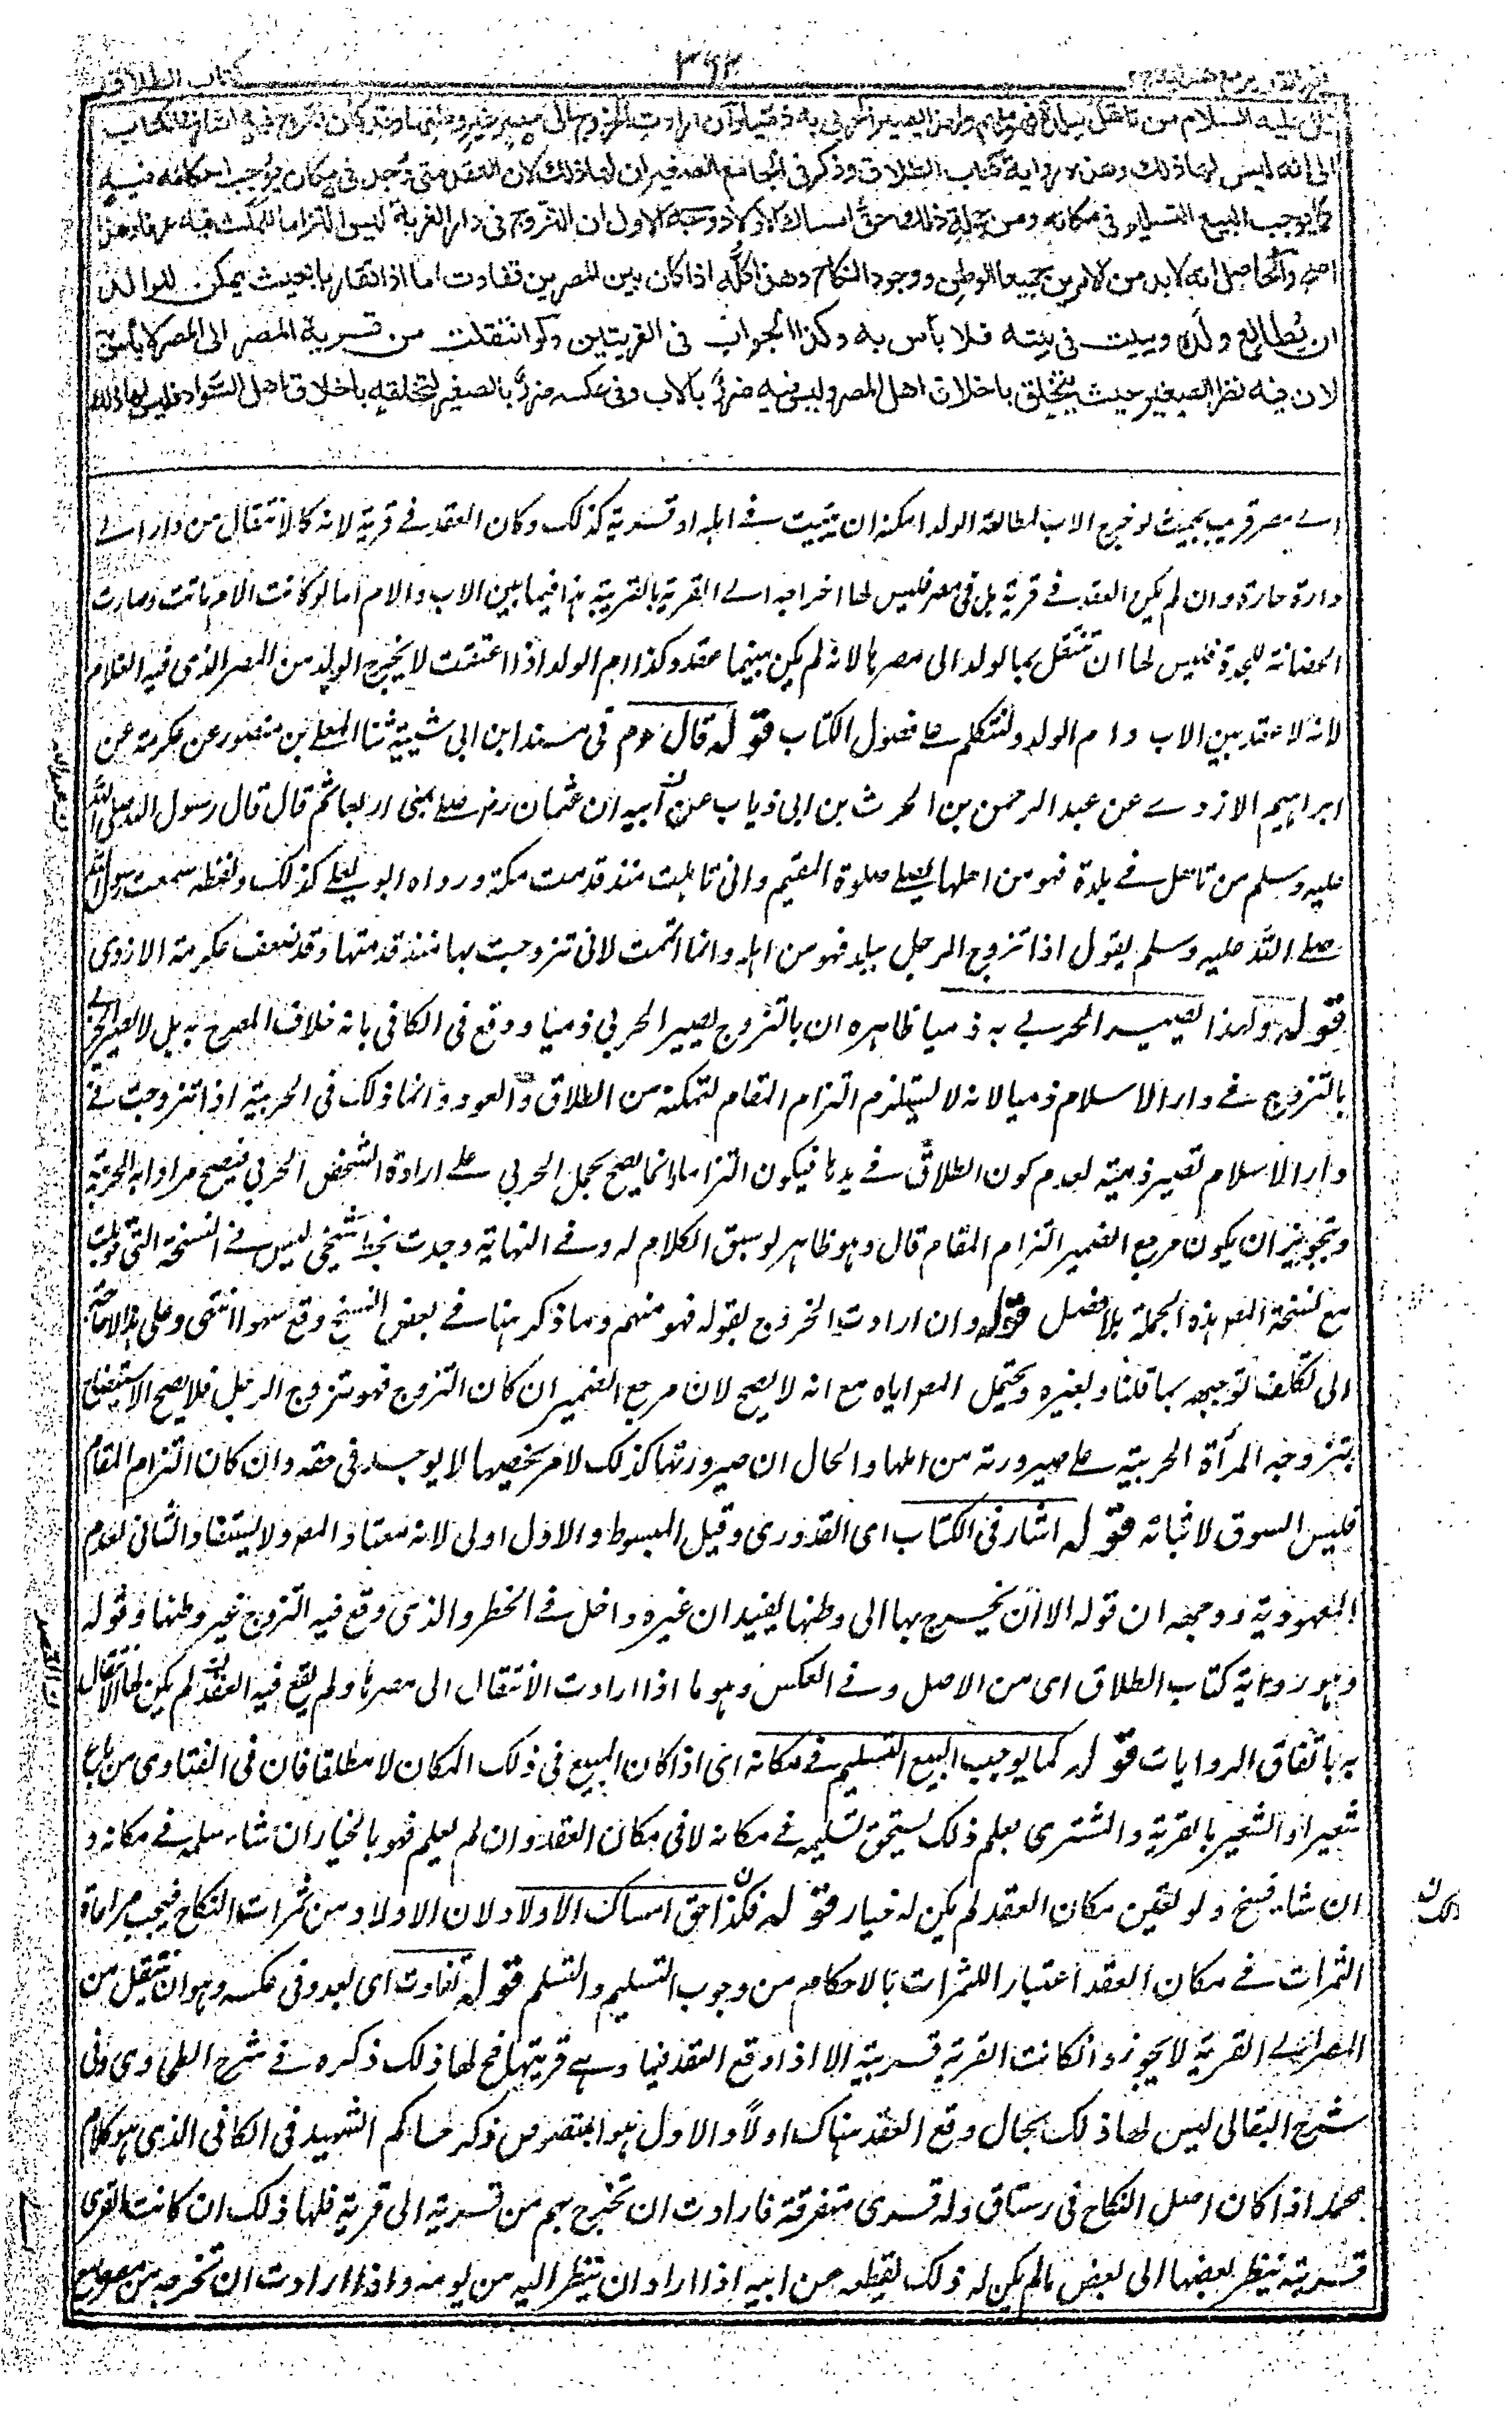 كتاب الطلاق
٣٦٢
عليه السلام من تأهل ببلدة فهو منهم ولهذا يصير الحربي به ذميا وان ارادت الخروج الى مصر غير وطنها وقد كان التزوج فيه اشار في الكتاب
الى انه ليس لها ذلك وهذا رواية كتاب الطلاق وذكر في الجامع الصغير ان لها ذلك لان العقد متى وجد في مكان يوجب احكامه فيه
كما يوجب البيع التسليم في مكانه ومن جملة ذلك حق امساك الاولاد وجه الاول ان التزوج في دار الغربة ليس التزاما للمكث فيه عرفا وهذا
اصح والحاصل انه لا بد من الامرين جميعا الوطن ووجود النكاح وهذا كله اذا كان بين المصرين تفاوت اما اذا تقاربا بحيث يمكن للوالد
ان يطالع ولده ويبيت في بيته فلا بأس به وكذا الجواب في القريتين ولو انتقلت من قرية المصر الى المصر لا بأس به
لان فيه نظرا للصغير حيث يتخلق باخلاق اهل المصر وليس فيه ضرر بالاب وفي عكسه ضرر بالصغير لتخلقه باخلاق اهل السواد فليس لها ذلك
الى مصر قريب بحيث لو خرج الاب لمطالعة الولد امكنه ان يبيت في اهله او قرية كذلك وكان العقد في قرية لانه كالانتقال من دار الى
دارة حارة وان لم يكن العقد في قرية بل في مصر فليس لها اخراجه الى القرية بالقريبة هذا فيما بين الاب والام اما لو كانت الام ماتت وصارت
الحضانة للجدة فليس لها ان تنتقل بالولد الى مصرها لانه لم يكن بينهما عقد وكذا ام الولد اذا اعتقت لا يخرج الولد من المصر الذي فيه الغلام
لانه لا عقد بين الاب وام الولد ولنتكلم على فصول الكتاب قوله قال عم في مسند ابن ابي شيبة ثنا المعلى بن منصور عن عكرمة عن
ابراهيم الازدي عن عبد الرحمن بن الحرث بن ابي ذياب عن ابيه ان عثمان رض صلى بمنى اربعا ثم قال قال رسول الله صلى الله
عليه وسلم من تاهل في بلدة فهو من اهلها يصلى صلوة المقيم واني تاهلت منذ قدمت مكة ورواه ابو يعلى كذلك ولفظه سمعت رسول الله
صلى الله عليه وسلم يقول اذا تزوج الرجل ببلد فهو من اهله وانما اتممت لاني تزوجت بها منذ قدمتها وقد ضعف عكرمة الازدي
قوله ولهذا يصير الحربي به ذميا ظاهره ان بالتزوج يصير الحربي ذميا ووقع في الكافي بانه خلاف المصرح به بل لا يصير الحربي
بالتزوج في دار الاسلام ذميا لانه لا يستلزم التزام المقام لتمكنه من الطلاق والعود وانما ذلك في الحربية اذا تزوجت في
دار الاسلام تصير ذمية لعدم كون الطلاق في يدها فيكون التزاما وانما يصح بحمل الحربي على ارادة الشخص الحربي فيصح مرادا به الحربية
وتجويز ان يكون مرجع الضمير التزام المقام قال وهو ظاهر لو سبق الكلام له وفي النهاية وجدت بخط شيخي ليس في النسخة التي قوبلت
مع نسخة المص هذه الجملة بل اتصل قوله وان ارادت الخروج بقوله فهو منهم وما ذكر هنا في بعض النسخ وقع سهوا انتهى وعلى هذا لا حاجة
الى تكلف توجيهه بما قلنا وبغيره وتحتمل المص اياه مع انه لا يصح لان مرجع الضمير ان كان التزوج فهو تزوج الرجل فلا يصح الاستيضاح
بتزوجه المرأة الحربية على صيرورته من اهلها والحال ان صيرورتها كذلك لامر يخصها لا يوجد في حقه وان كان التزام المقام
فليس السوق لاثباته قوله اشار في الكتاب اى القدوري وقيل المبسوط والاول اولى لانه معتاد المص ولا يستفاد الثاني لعدم
المعهودية ووجهه ان قوله الا ان يخرج بها الى وطنها يفيد ان غيره داخل في الحظر والذي وقع فيه التزوج غير وطنها وقوله
وهو رواية كتاب الطلاق اى من الاصل وفي العكس وهو ما اذا ارادت الانتقال الى مصرها ولم يقع فيه العقد لم يكن لها الانتقال
به باتفاق الروايات قوله كما يوجب البيع التسليم في مكانه اى اذا كان المبيع في ذلك المكان لا مطلقا فان في الفتاوى من باع
شعيرا والشعير بالقرية والمشتري يعلم ذلك يستحق تسليمه في مكانه لا في مكان العقد وان لم يعلم فهو بالخيار ان شاء سلمه في مكانه و
ان شاء فسخ ولو تعين مكان العقد لم يكن له خيار قوله فكذا حق امساك الاولاد لان الاولاد من ثمرات النكاح فيجب مراعاة
الثمرات في مكان العقد اعتبارا للثمرات بالاحكام من وجوب التسليم والتسلم قوله تفاوت اى بعد وفي عكسه وهو ان تنتقل من
المصر الى القرية لا يجوز وان كانت القرية قريبة الا اذا وقع العقد فيها وهي قريتها فح لها ذلك ذكره في شرح الطحاوي وفي
شرح البقالي ليس لها ذلك بحال وقع العقد هناك اولا والاول هو المنصوص ذكر حاكم الشهيد في الكافي الذي هو كلام
محمد اذا كان اصل النكاح في رستاق وله قرى متفرقة فارادت ان تخرج بهم من قرية الى قرية فلها ذلك ان كانت القرى
قريبة ينظر بعضها الى بعض ما لم يكن له ذلك يقطعه عن ابيه اذا اراد ان ينظر اليه من يومه واذا ارادت ان تخرجه من مصر جامع